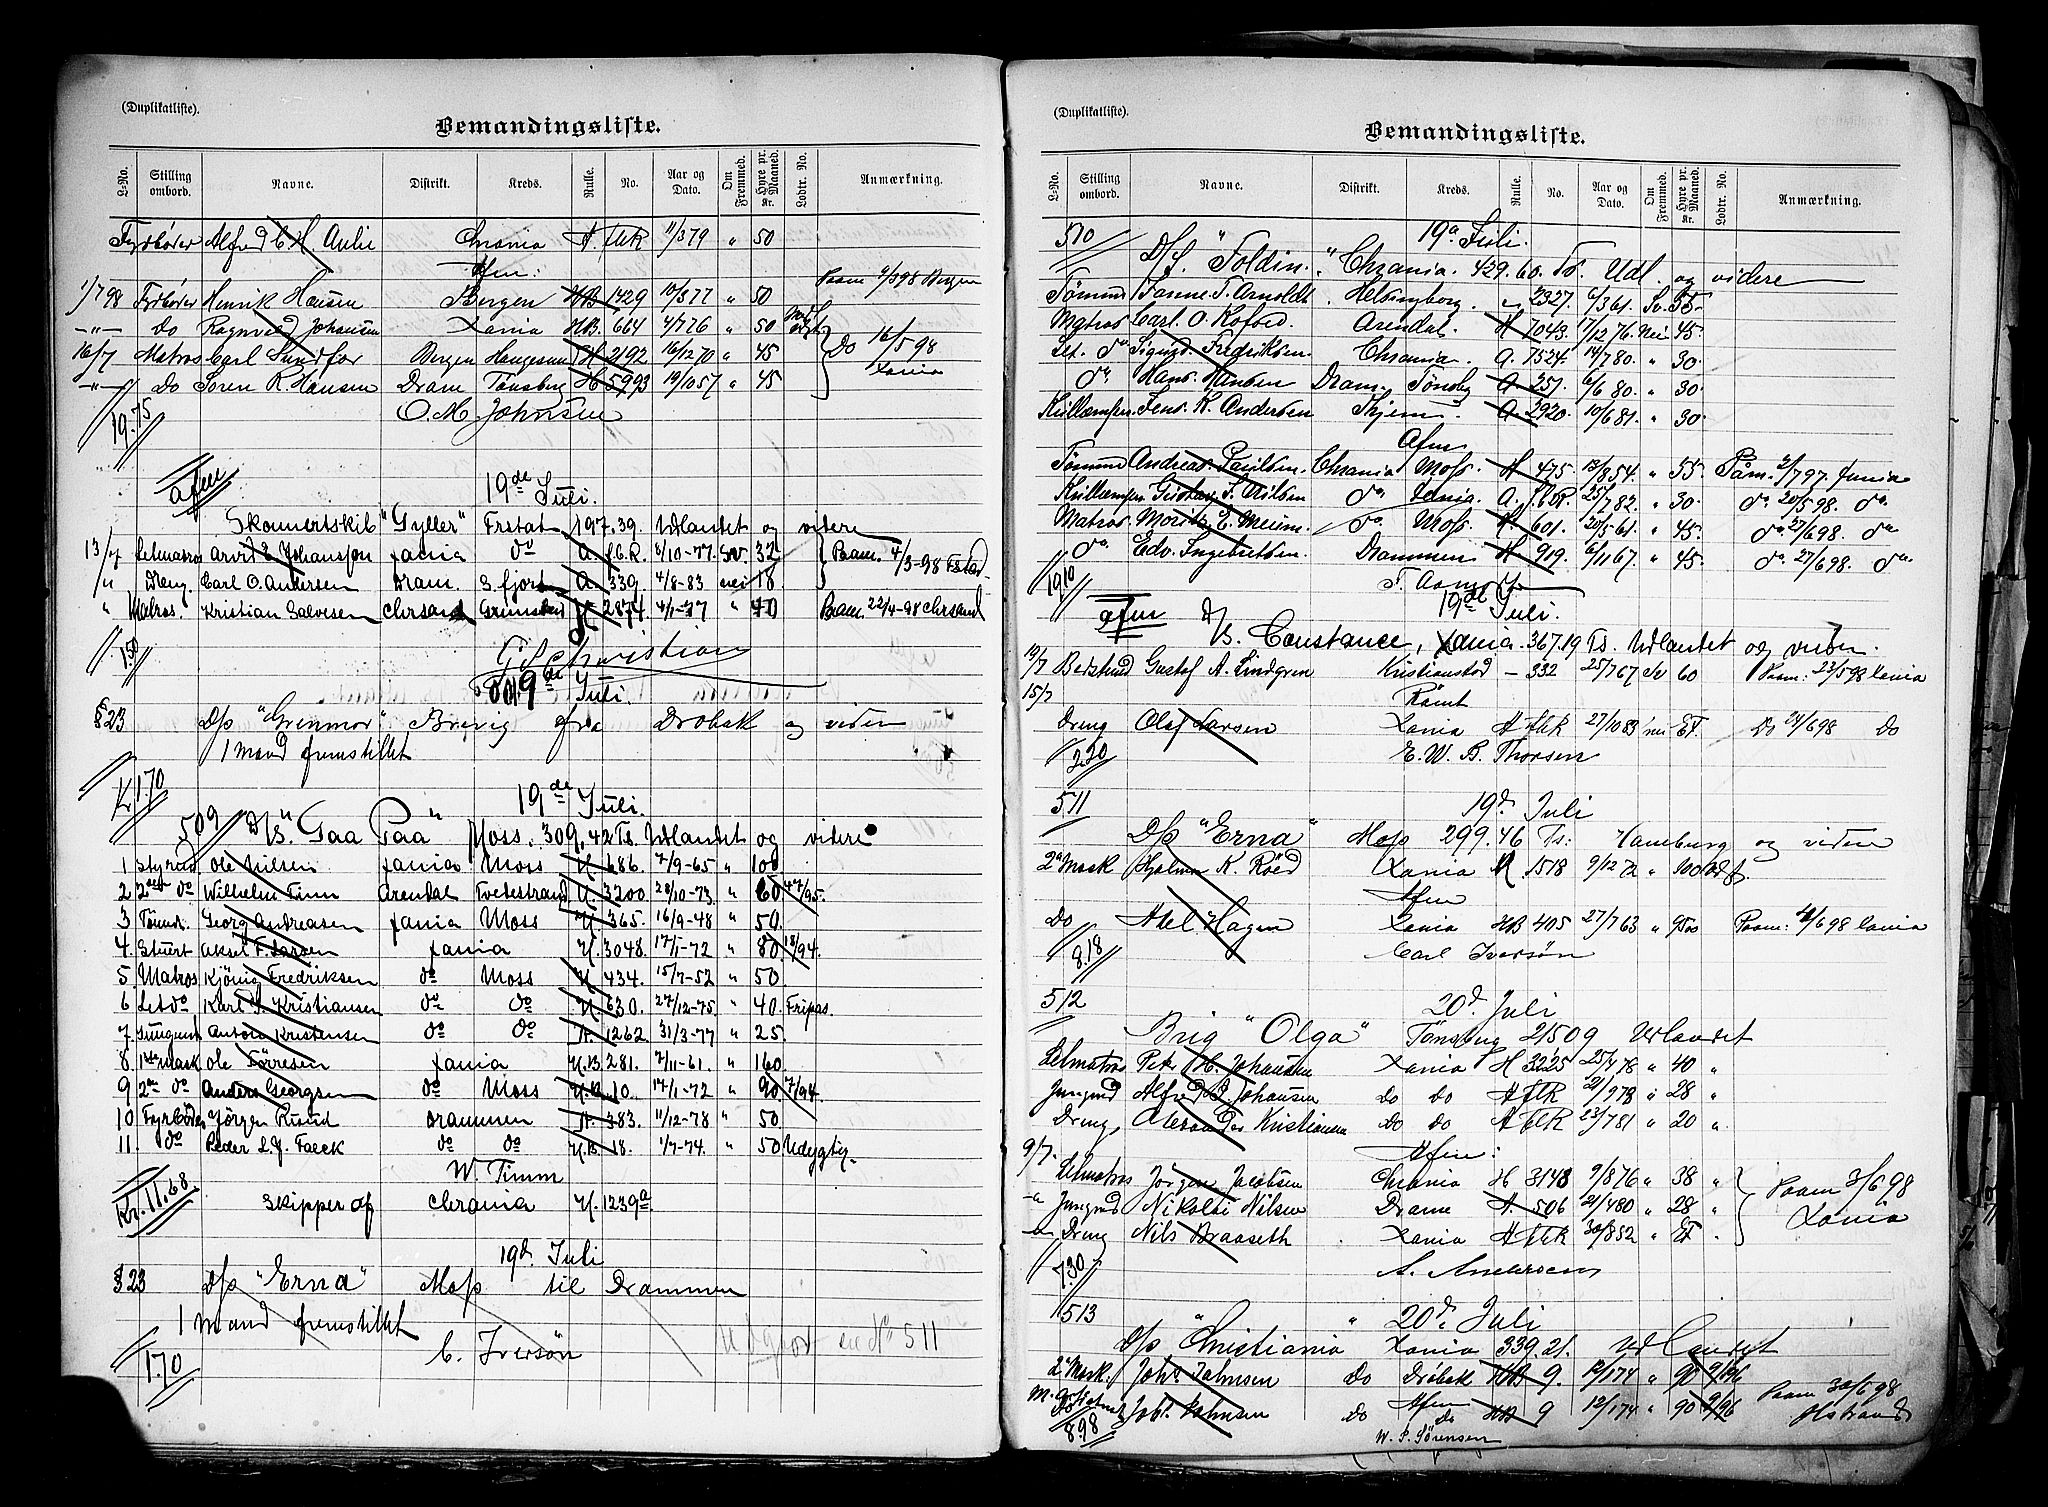 (Duplikatliste).
Bemandingsliste.
L-No. Stilling ombord. Navne. Distrikt. Kreds. Rulle. No. Aar og Dato. Om Fremmed. Hyre pr. Maaned. Kr. Lodtr. No. Anmærkning.
Fyrbøder Alfred C. H. Aulie Chrania A. flk 11/379 " 50
Afm:
1/7 98 Fyrbøder Henrik Hansen Bergen HB 1429 10/377 " 50 Paam 4/398 Bergen
-"- Do Ragnvald Johansen Xania HB. 664 4/776 " 50
16/7 Matros Carl Sundfør Bergen Haugesund H 2192 16/1270 " 45 Do 16/598 Xania
-"- Do Søren R. Hansen Dram Tønsberg H 5993 19/1057 " 45
O. M. Johnsen
19.75
afm
19de Juli.
Skonnertskib "Gyller" Frstat 197.39. Udlandet og videre
13/7 Letmatros Arvid E Johansson Xania do A. f.C.R. 8/10-77. Sv. 32
" Dreng. Carl O. Andersen Dram. S.fjord A. 339. 4/8-83 nei 18. Paam. 4/3-98 Fstad
" Matros. Kristian Salvesen Chrsand Grimstad H. 2874. 4/1-37 " 40 Paam. 22/4-98 Chrsand
1.50
G. S. Christian
19de Juli.
§23 D/s "Grenmar" Brevig fra Drøbak og viden
1 mand fremstillet
Kr 1.70
19de Juli.
509 D/S. "Gaa Paa" Moss. 309,42 Ts. Udlandet og videre
1 Styrmd. Ole Nilsen Xania Moss H. 686. 7/9-65 " 100
2 2den do Wilhelm Timm Arendal Tvedestrand H. 3200. 28/10-73. " 60 47/95.
3 Tømm. Georg Andreasen Xania Moss H. 365. 16/9-48 " 50.
4. Stuert Aksel F. Larsen Xania H. 3048. 17/1-72 " 80 18/94.
5. Matros Kjönig Fredriksen do Moss H. 434. 15/7-52 " 50.
6 Let do Karl J. Kristiansen do do H. 630. 27/12-75. " 40. Fripas.
7. Jungmd Anton Kristensen do do A. 1262. 31/3-77 " 25.
8. 1ste Mask Ole Tørresen Xania H.B. 281. 7/11-61. " 160.
9 2den do Anders Georgsen do Moss H.B. 10. 14/1-72 " 90 7/94.
10 Fyrbøder Jörgen Ruud Drammen A. 383. 11/12-78 " 50
11. do Peder L. J. Faeck do do H.B. 18. 1/7-74. " 50 Udygtig.
W. Timm
Kr. 11.68 Skipper af Chrania H. 1239a
19d. Juli
§23 D/s "Erna" Moss til Drammen
1 mand fremstillet
Udgaar en No 511
1.70 C. Iversön
(Duplikatliste).
Bemandingsliste.
L-No. Stilling ombord. Navne. Distrikt. Kreds. Rulle. No. Aar og Dato. Om Fremmed. Hyre pr. Maaned. Kr. Lodtr. No. Anmærkning.
510 19d Juli.
D/S. "Foldin". Chrania. 429.60. Ts. Udl. og videre
Tømmd Janne. T. Arnoldt. Helsingborg. " 2327. 6/361. Sv. 55.
Matros Carl. O. Kofoed. Arendal. H 7043. 17/12 76. Nei 45.
Let. do Sigurd. Fredriksen. Chrania. A. 7524 14/780. " 30.
do. Hans. Hansen Dram. Tønsbg A 251. 6/6 80. " 30.
Kullemper. Jens. K. Andersen Thjem. A. 2920. 10/681. " 30.
Afm
Tømmd Andreas. Paulsen. Chrania Moss. H 475. 13/854. " 55. Paam. 2/797. Xania
Kullemper Gustav. S. Nilsen do. Xania. A. f.C.R. 25/782. " 30. do. 20/598. do.
Matros. Moritz E. Meium. do. Moss. H. 601. 20/561. " 45. do. 27/698. do
do. Edv. Ingebretsen. Drammen H 919. 6/1167. " 45. do. 27/698. do.
1910 T. Aamodt
19de Juli.
afm D/S. Constance, Xania. 367.19 Ts. Udlandet og viden.
14/7 Betstmd Gustaf A. Lindgren Kristianstad - 332 25/767 Sv 60 Paam: 23/598 Xania
15/7 Rømt
Dreng Olaf Larsen Xania A flk 27/1083 nei Et. Do 24/698 Do
2.20 E. W. B. Thorsen
511 19d. Juli
D/s "Erna" Moss 299.46 Ts: Hamburg og viden
2d Mask Hjalmar K. Röed Xania M 1518 9/1272 " 100
Afm
Do Axel Hagen Xania HB 405 27/763 " 95 Paam: 4/698 Xania
8.18 Carl Iversön
512 20d. Juli
Brig "Olga" Tönsberg 215.09 Udlandet
Letmatros Peter H. Johansen Xania H 3225 25/478 " 40 "
Jungmd Alfred B. Johansen do do A flk 21/978 " 28 "
Dreng Alexander Kristiansen Do do A flk 23/781 " 20 "
9/7. Afm:
Letmatros Jörgen Jacobsen Chrania H 3148 9/876 " 38 " Paam 3/698 Xania
-" Jungmd Nikolai Nilsen Dram A. 506 21/480 " 28 "
-" Dreng Nils Braaseth Xania A flk 30/852 " Et .
7.30 A. Andersen
513 20d. Juli
D/s "Christiania Xania 339.21. Udlandet
2d Mask. Johs Johnsen Do Drøbak HB 9. 12/174 " 90 9/96
Afm Paam 30/698 Hstrand
Joh. Johnsen Do Do HB 9 12/174 " 90 9/96
8.98 W. S. Sörensen